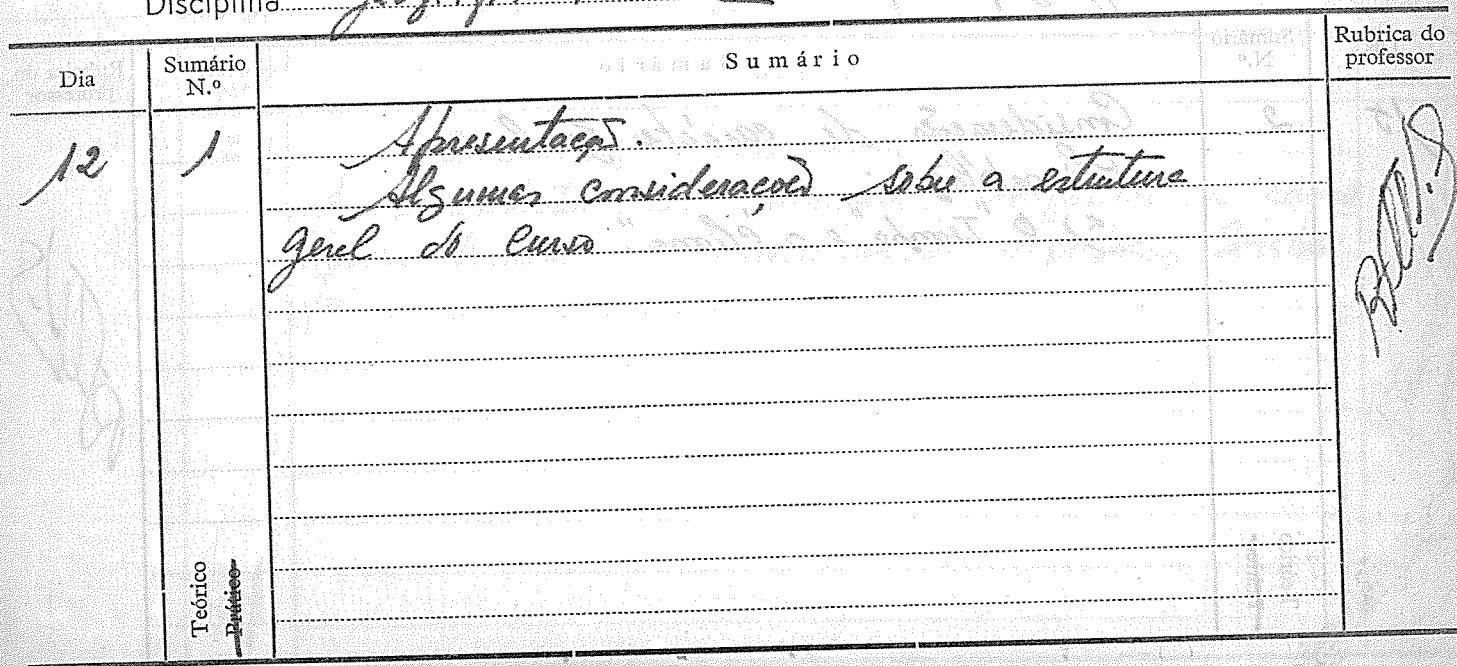 Disciplina
Dia
Sumário N.º
Sumário
Rubrica do professor
12
1
Apresentação.
Algumas considerações sobre a estrutura
geral do curso
Teórico
Prático